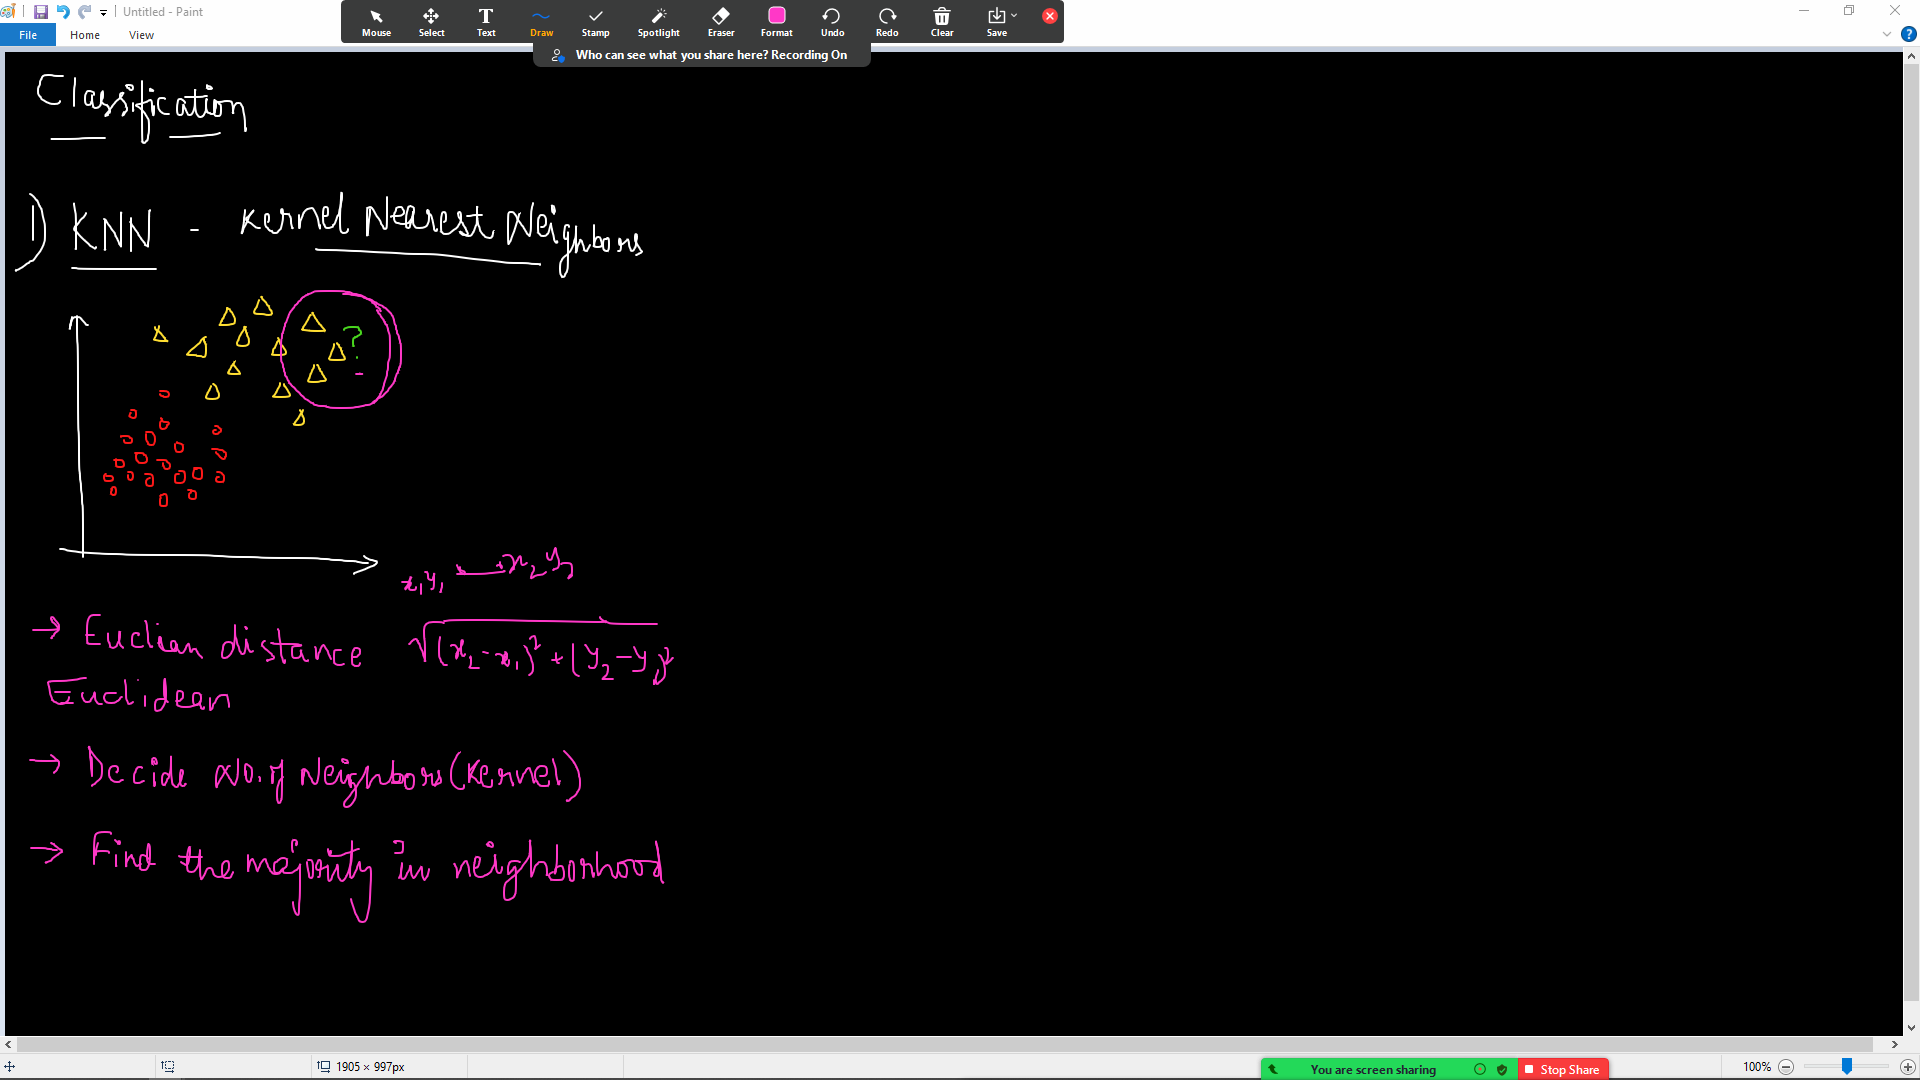 Untitled - Paint
File Home View
Mouse Select Text Draw Stamp Spotlight Eraser Format Undo Redo Clear Save
Who can see what you share here? Recording On
Classification
1) KNN - Kernel Nearest Neighbors
?
x₁y₁ x₂y₂
→ Euclian distance √(x₂-x₁)² + (y₂-y₁)²
Euclidean
→ Decide No. of Neighbors (Kernel)
→ Find the majority in neighborhood
1905 × 997px
You are screen sharing Stop Share
100%